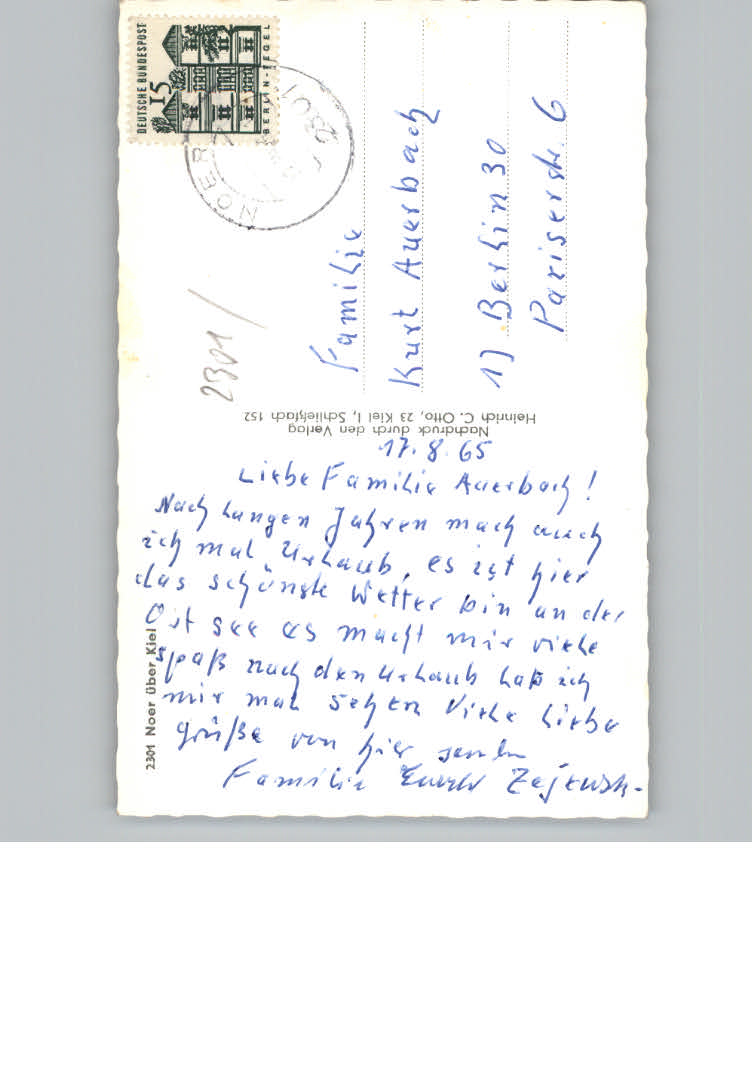 DEUTSCHE BUNDESPOST
15
BERLIN-TEGEL
NOER
2301
2301/
Familie
Kurt Auerbach
1) Berlin 30
Pariserstr. 6
Nachdruck durch den Verlag
Heinrich C. Otto, 23 Kiel 1, Schließfach 152
2301 Noer über Kiel
17.8.65
Liebe Familie Auerbach!
Nach langen Jahren mach auch
ich mal Urlaub, es ist hier
das schönste Wetter bin an der
Ost see es macht mir viele
spaß nach den Urlaub hab ich
mir mal sehen Viele liebe
grüße von hier senden
Familie